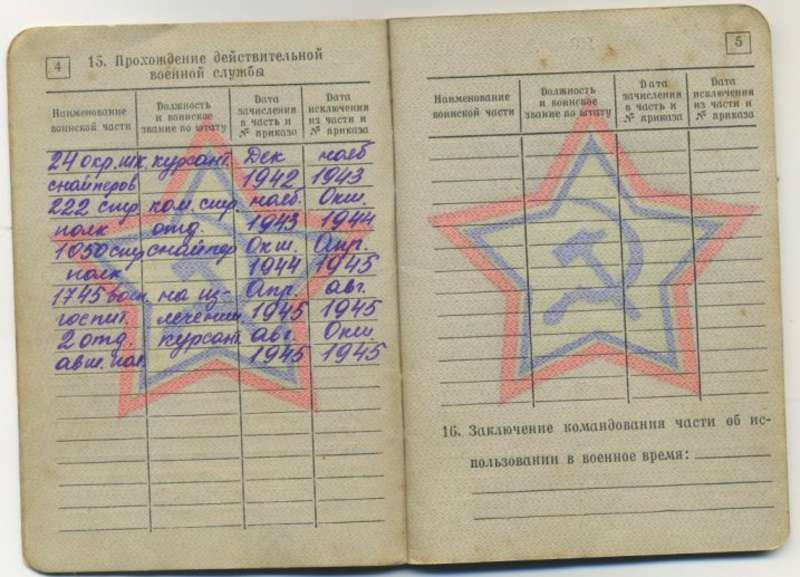 4
15. Прохождение действительной
военной службы
Наименование воинской части | Должность и воинское звание по штату | Дата зачисления в часть и № приказа | Дата исключения из части и № приказа
24 окр. шк. курсант. Дек нояб
снайперов 1942 1943
222 стр. ком. стр. нояб. Окт.
полк отд. 1943 1944
1050 стр снайпер Окт. Апр.
полк 1944 1945
1745 воен. на из- Апр. авг.
госпит. лечении 1945 1945
2 отд. курсант авг. Окт.
авт. пол. 1945 1945
5
Наименование воинской части | Должность и воинское звание по штату | Дата зачисления в часть и № приказа | Дата исключения из части и № приказа
16. Заключение командования части об ис-
пользовании в военное время: